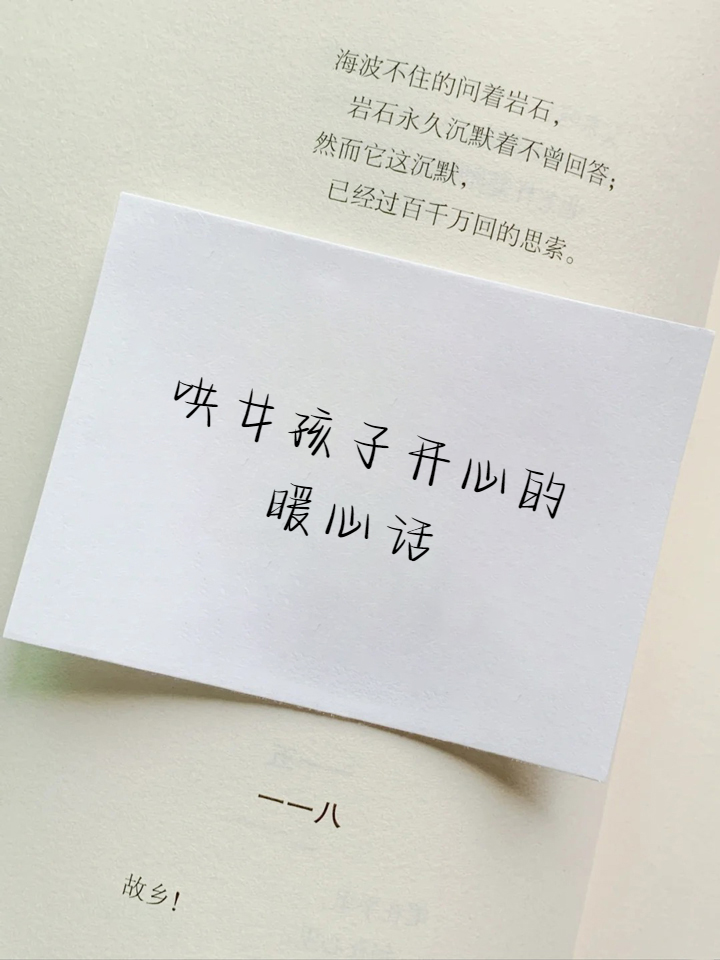 海波不住的问着岩石，
岩石永久沉默着不曾回答；
然而它这沉默，
已经过百千万回的思索。
哄女孩子开心的
暖心话
一一八
故乡！